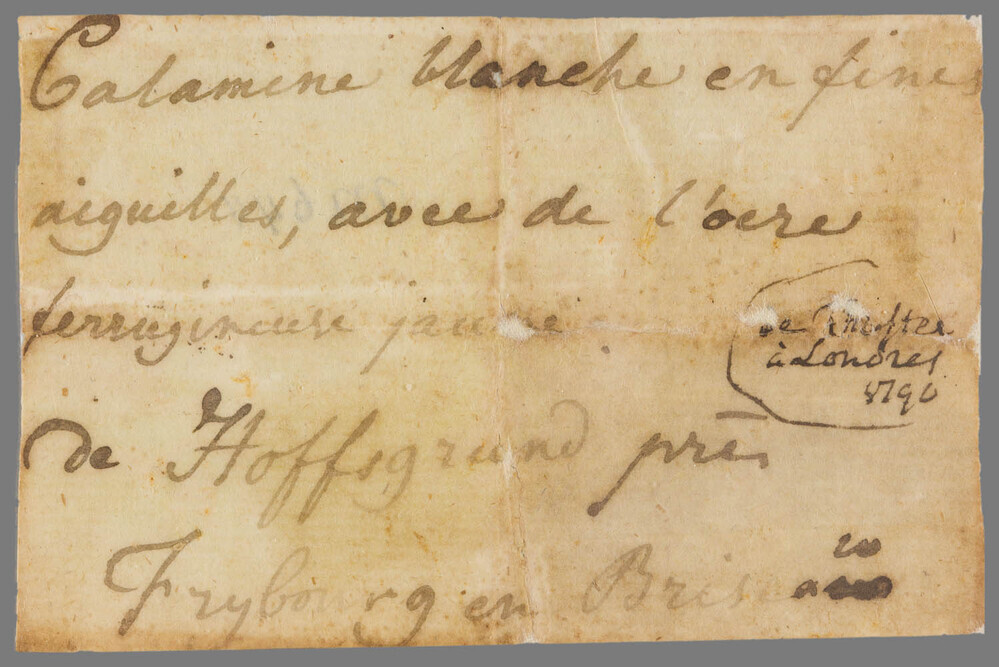 Calamine blanche en fines
aiguilles, avec de l'ocre
ferrugineuse jaune
de Hoffsgrund près
Frybourg en
à Londres
1790